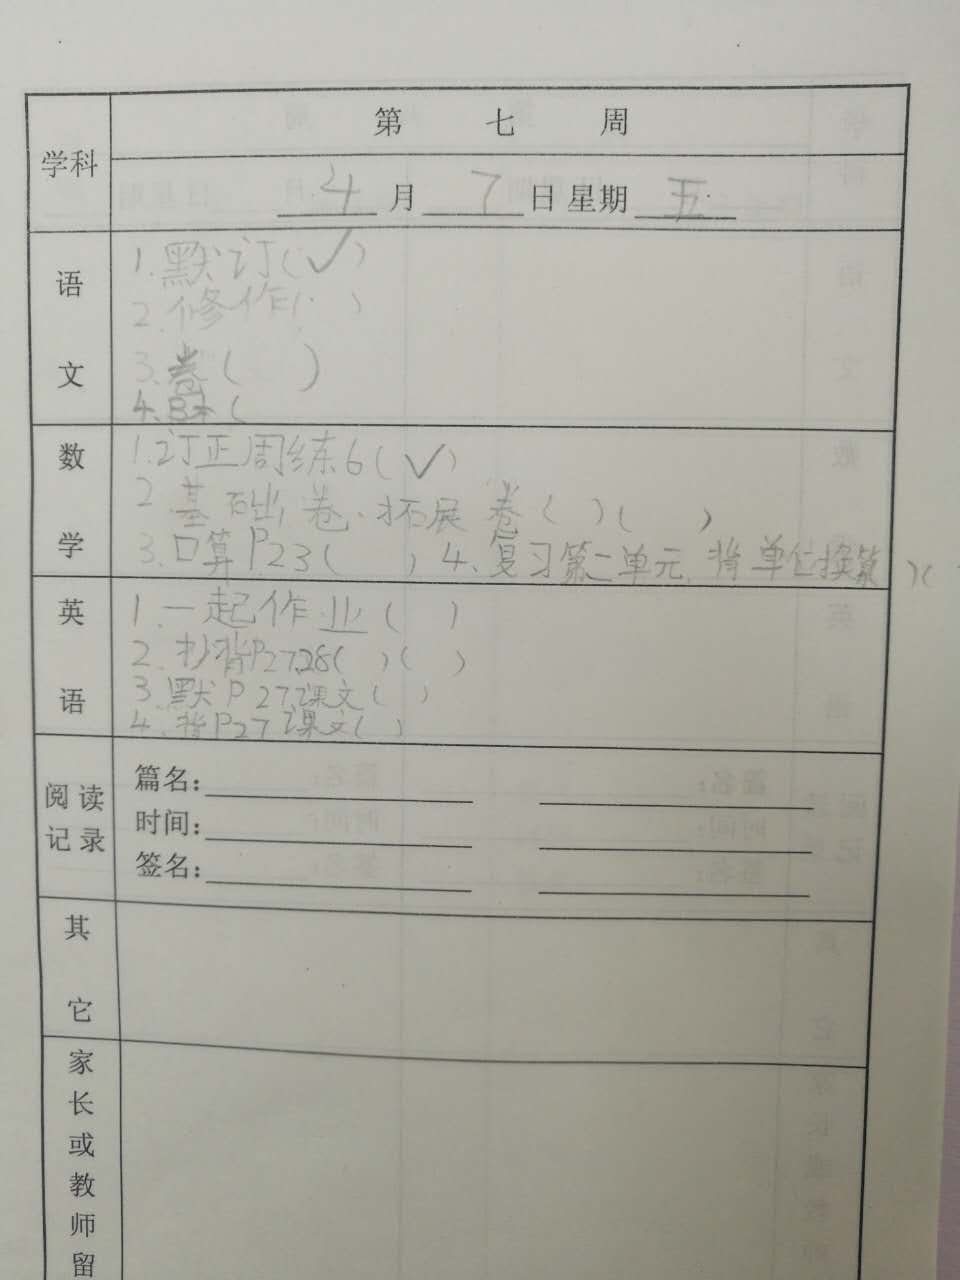 学科
第 七 周
4 月 7 日 星期 五
语文
1.默订(✓)
2.修作( )
3.卷( )
4.
数学
1.订正周练6(✓)
2.基础卷.拓展卷( )( )
3.口算P23( ) 4.复习第二单元.背单位换算( )(
英语
1.一起作业( )
2.抄背P27,28( )( )
3.默P27课文( )
4.背P27课文( )
阅读记录
篇名:
时间:
签名:
其它
家长或教师留